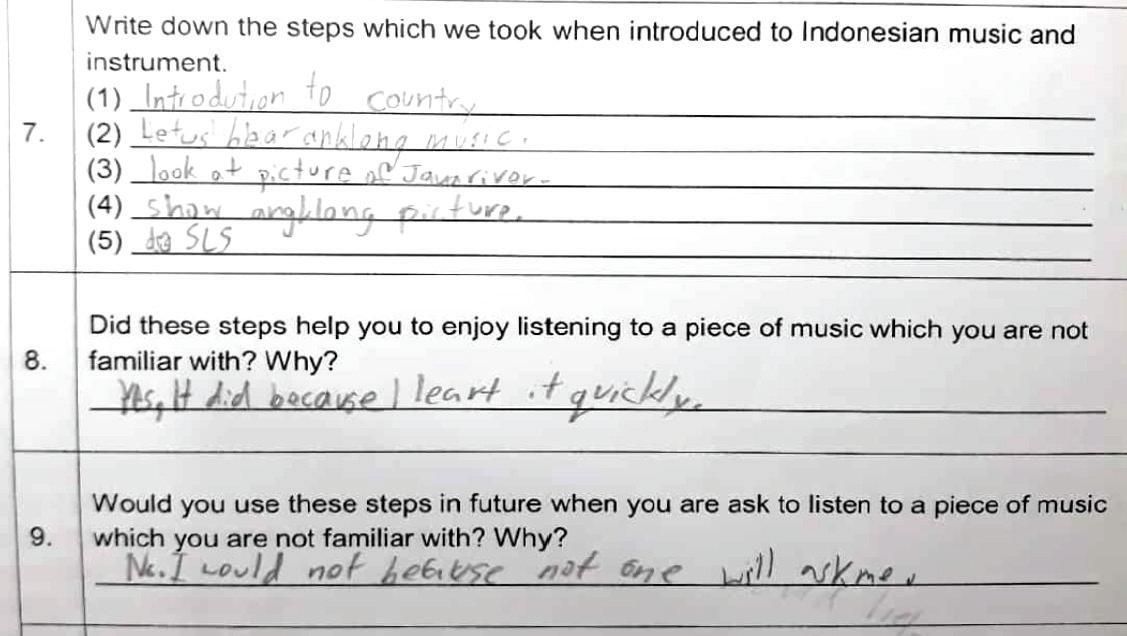 Write down the steps which we took when introduced to Indonesian music and
instrument.
(1) Introdution to country
7. (2) Let us hear anklong music.
(3) look at picture of Java river.
(4) show angklong picture.
(5) do SLS
Did these steps help you to enjoy listening to a piece of music which you are not
8. familiar with? Why?
Yes, It did because I leart it quickly.
Would you use these steps in future when you are ask to listen to a piece of music
9. which you are not familiar with? Why?
No. I would not because not one will ask me.